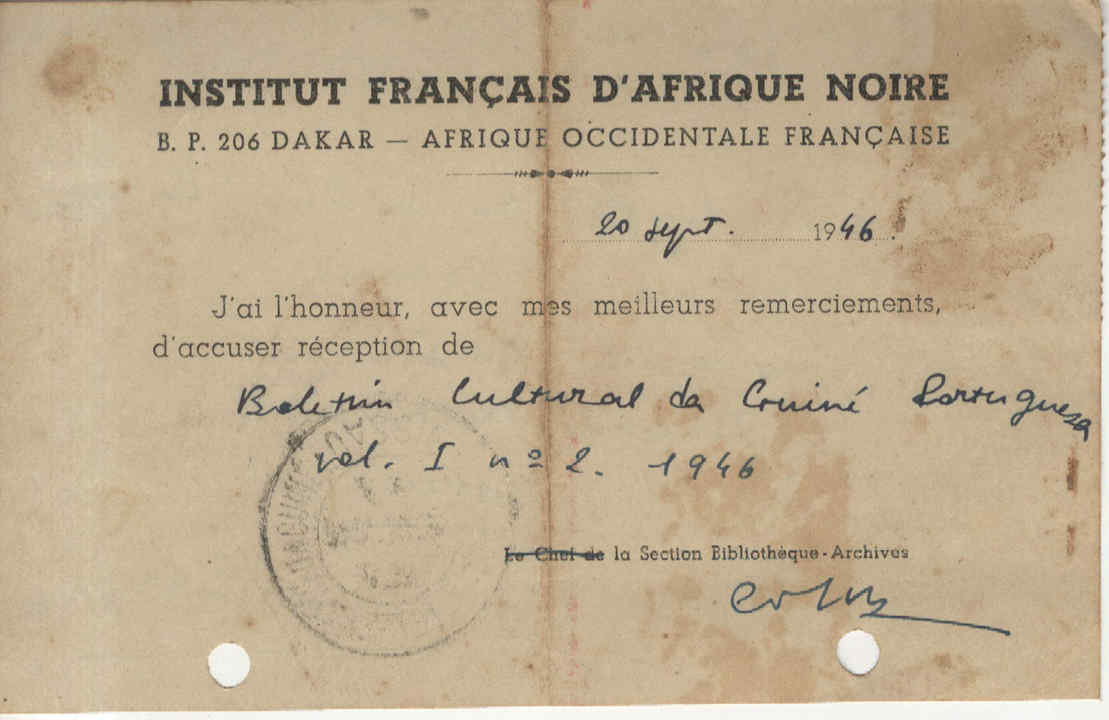 INSTITUT FRANÇAIS D'AFRIQUE NOIRE
B. P. 206 DAKAR — AFRIQUE OCCIDENTALE FRANÇAISE
20 sept. 1946
J'ai l'honneur, avec mes meilleurs remerciements,
d'accuser réception de
Boletim Cultural da Guiné Portuguesa
vol. I nº 2. 1946
Le Chef de la Section Bibliothèque-Archives